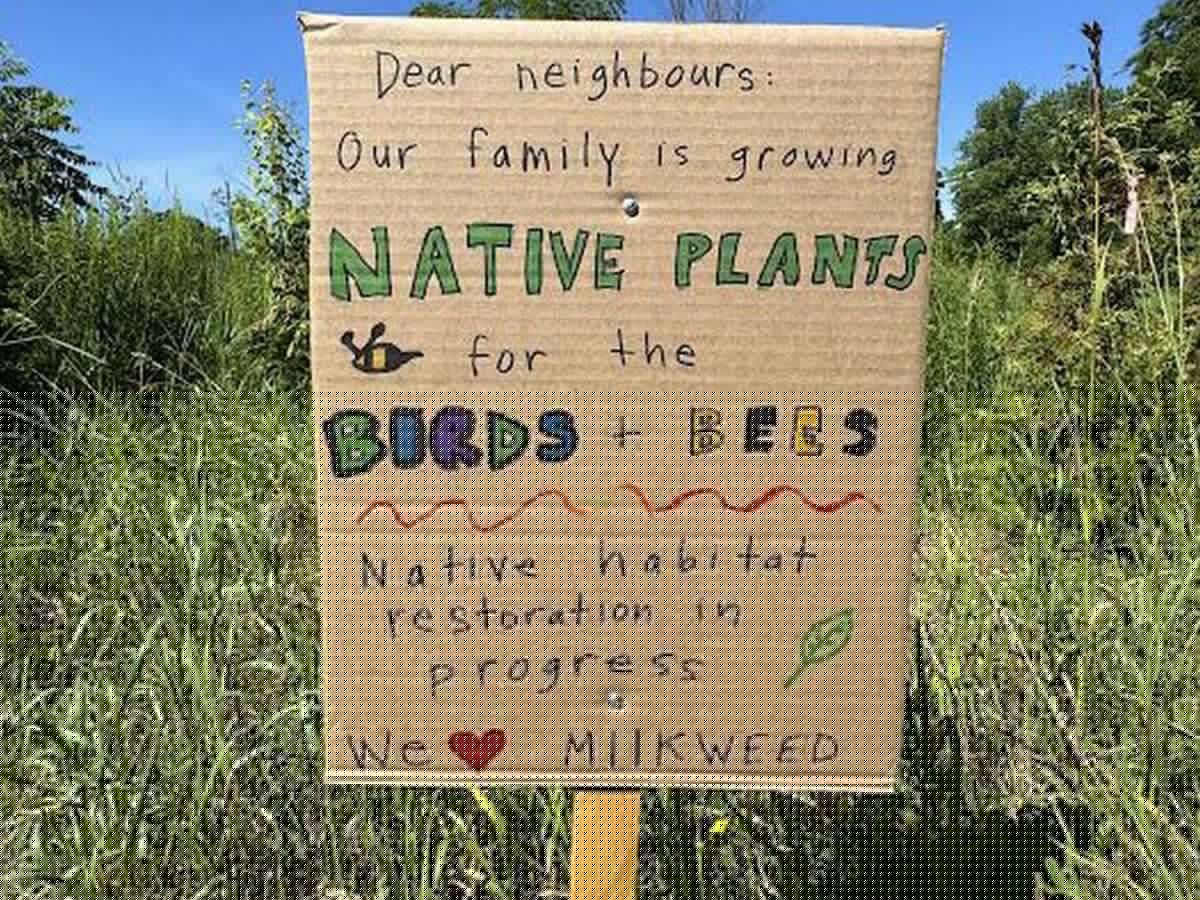 Dear neighbours:
Our family is growing
NATIVE PLANTS
for the
BIRDS + BEES
Native habitat
restoration in
progress
We ❤ MIlKWEED